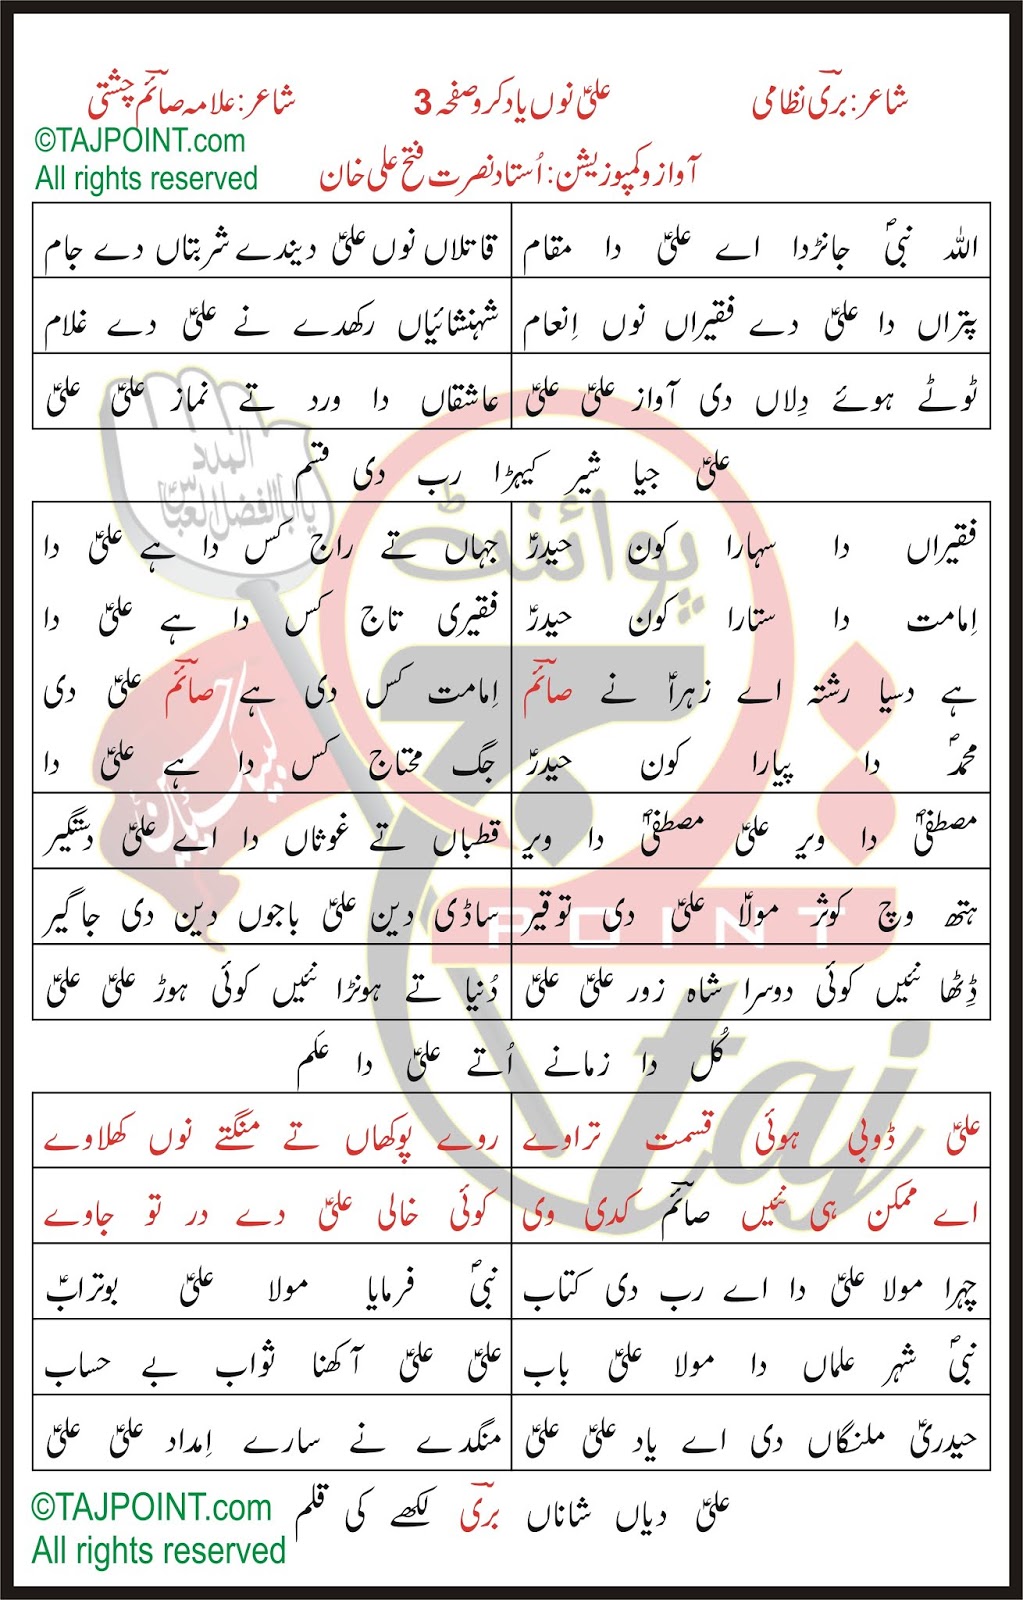 شاعر: بری نظامی علیؑ نوں یاد کرو صفحہ 3 شاعر: علامہ صائم چشتی
©TAJPOINT.com
All rights reserved
آواز و کمپوزیشن: اُستاد نصرت فتح علی خان
اللہ نبیؐ جانڑدا اے علیؑ دا مقام قاتلاں نوں علیؑ دیندے شربتاں دے جام
پتراں دا علیؑ دے فقیراں نوں اِنعام شہنشائیاں رکھدے نے علیؑ دے غلام
ٹوٹے ہوئے دِلاں دی آواز علیؑ علیؑ عاشقاں دا ورد تے نماز علیؑ علیؑ
علیؑ جیا شیر کیہڑا رب دی قسم
فقیراں دا سہارا کون حیدرؑ جہاں تے راج کس دا ہے علیؑ دا
اِمامت دا ستارا کون حیدرؑ فقیری تاج کس دا ہے علیؑ دا
ہے دسیا رشتہ اے زہراؑ نے صائم اِمامت کس دی ہے صائم علیؑ دی
محمدؐ دا پیارا کون حیدرؑ جگ محتاج کس دا ہے علیؑ دا
مصطفیٰؐ دا ویر علیؑ مصطفیٰؐ دا ویر قطباں تے غوثاں دا اے علیؑ دستگیر
ہتھ وچ کوثر مولاؑ علیؑ دی توقیر ساڈی دین علیؑ باجوں دین دی جاگیر
ڈِٹھا نئیں کوئی دوسرا شاہ زور علیؑ علیؑ دُنیا تے ہونڑا نئیں کوئی ہوڑ علیؑ علیؑ
کُل دا زمانے اُتے علیؑ دا عَلم
علیؑ ڈوبی ہوئی قسمت تراوے روے پوکھاں تے منگتے نوں کھلاوے
اے ممکن ہی نئیں صائم کدی وی کوئی خالی علیؑ دے در تو جاوے
چہرا مولا علیؑ دا اے رب دی کتاب نبیؐ فرمایا مولا علیؑ بوترابؑ
نبیؐ شہر علماں دا مولا علیؑ باب علیؑ علیؑ آکھنا ثواب بے حساب
حیدریؑ ملنگاں دی اے یاد علیؑ علیؑ منگدے نے سارے اِمداد علیؑ علیؑ
علیؑ دیاں شاناں بری لکھے کی قلم
©TAJPOINT.com
All rights reserved
یا ابا الفضل العباسؑ
المدد
لبیک یا حسینؑ
پوائنٹ
POINT
taj